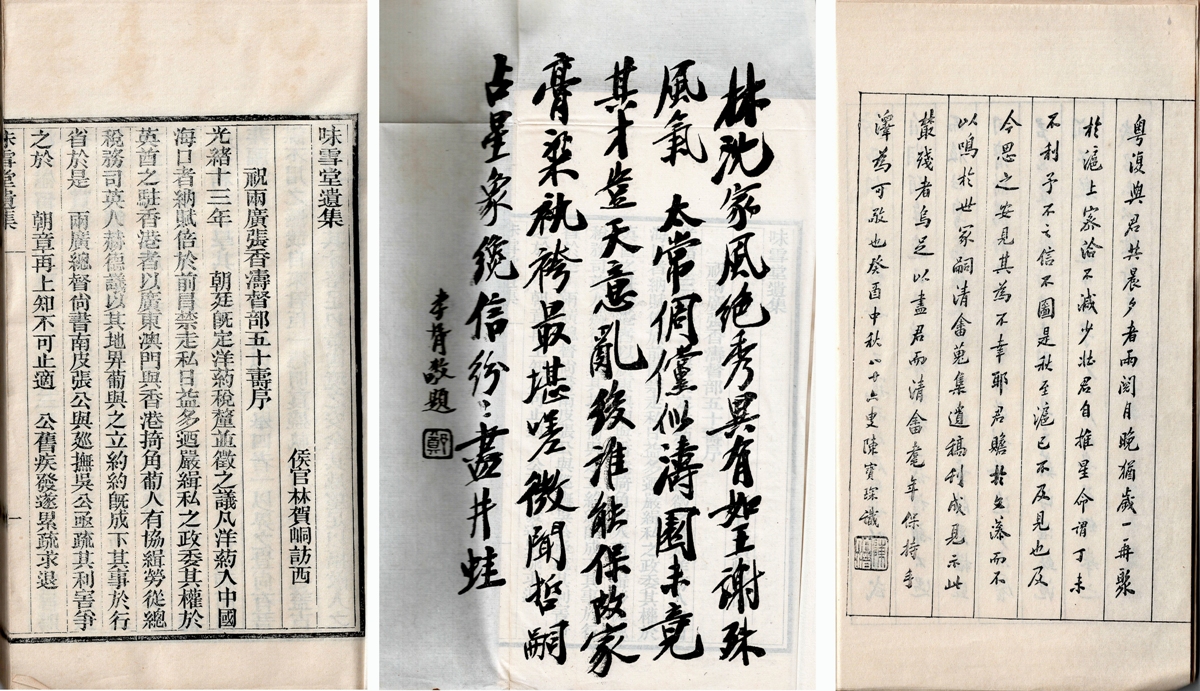 味雪堂遺集
祝兩廣張香濤督部五十壽序
侯官林賀峒訪西
光緒十三年 朝廷既定洋葯稅釐並徵之議凡洋葯入中國
海口者納賦倍於前昌禁走私日益多迺嚴緝私之政委其權於
英酋之駐香港者以廣東澳門與香港掎角葡人有協緝勞從總
稅務司英人赫德議以其地畀葡與之立約約既成下其事於行
省於是 兩廣總督尚書南皮張公與廵撫吳公亟疏其利害爭
之於 朝章再上知不可止適 公舊疾發遂累疏求退
味雪堂遺集 一
林沈家風絕秀異有如王謝殊
風氣 太常倜儻似濤園未竟
其才豈天意亂後誰能保故家
膏粱紈袴最堪嗟微聞哲嗣
占星象纔信紛〻盡井蛙
孝胥敬題
鄭
粵復與君共晨夕者兩閱月晚猶歲一再聚
於滬上洽不減少壯君自推星命謂丁未
不利予不之信不圖是秋至滬已不及見也及
今思之安見其為不幸耶君贍於文藻而不
以鳴於世冢嗣清畬蒐集遺稿刊成見示此
叢殘者烏足以盡君而清畬耄年保持手
澤為可敬也癸酉中秋八十六叟陳寶琛識